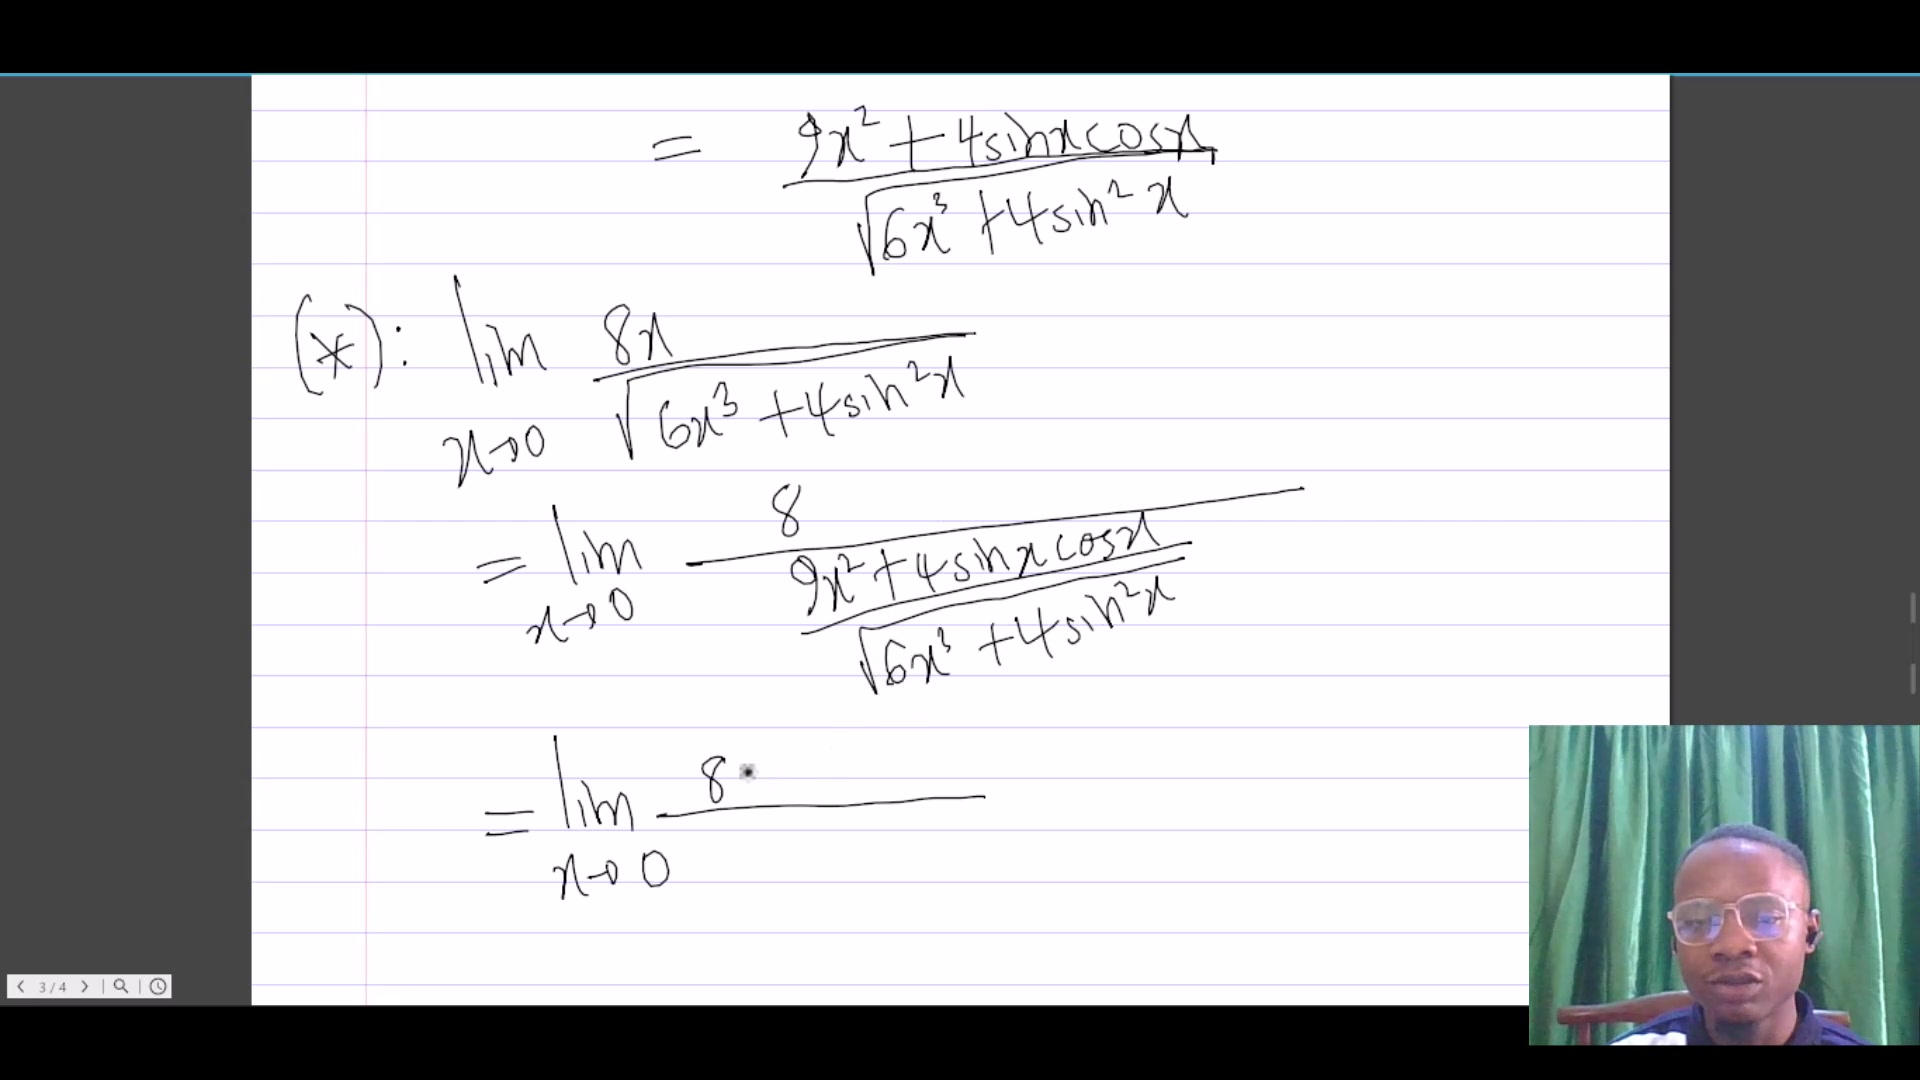 = 9x² + 4sinxcosx / √6x³ + 4sin²x
(*): lim x→0 8x / √6x³ + 4sin²x
= lim x→0 8 / 9x² + 4sinxcosx / √6x³ + 4sin²x
= lim x→0 8
3/4